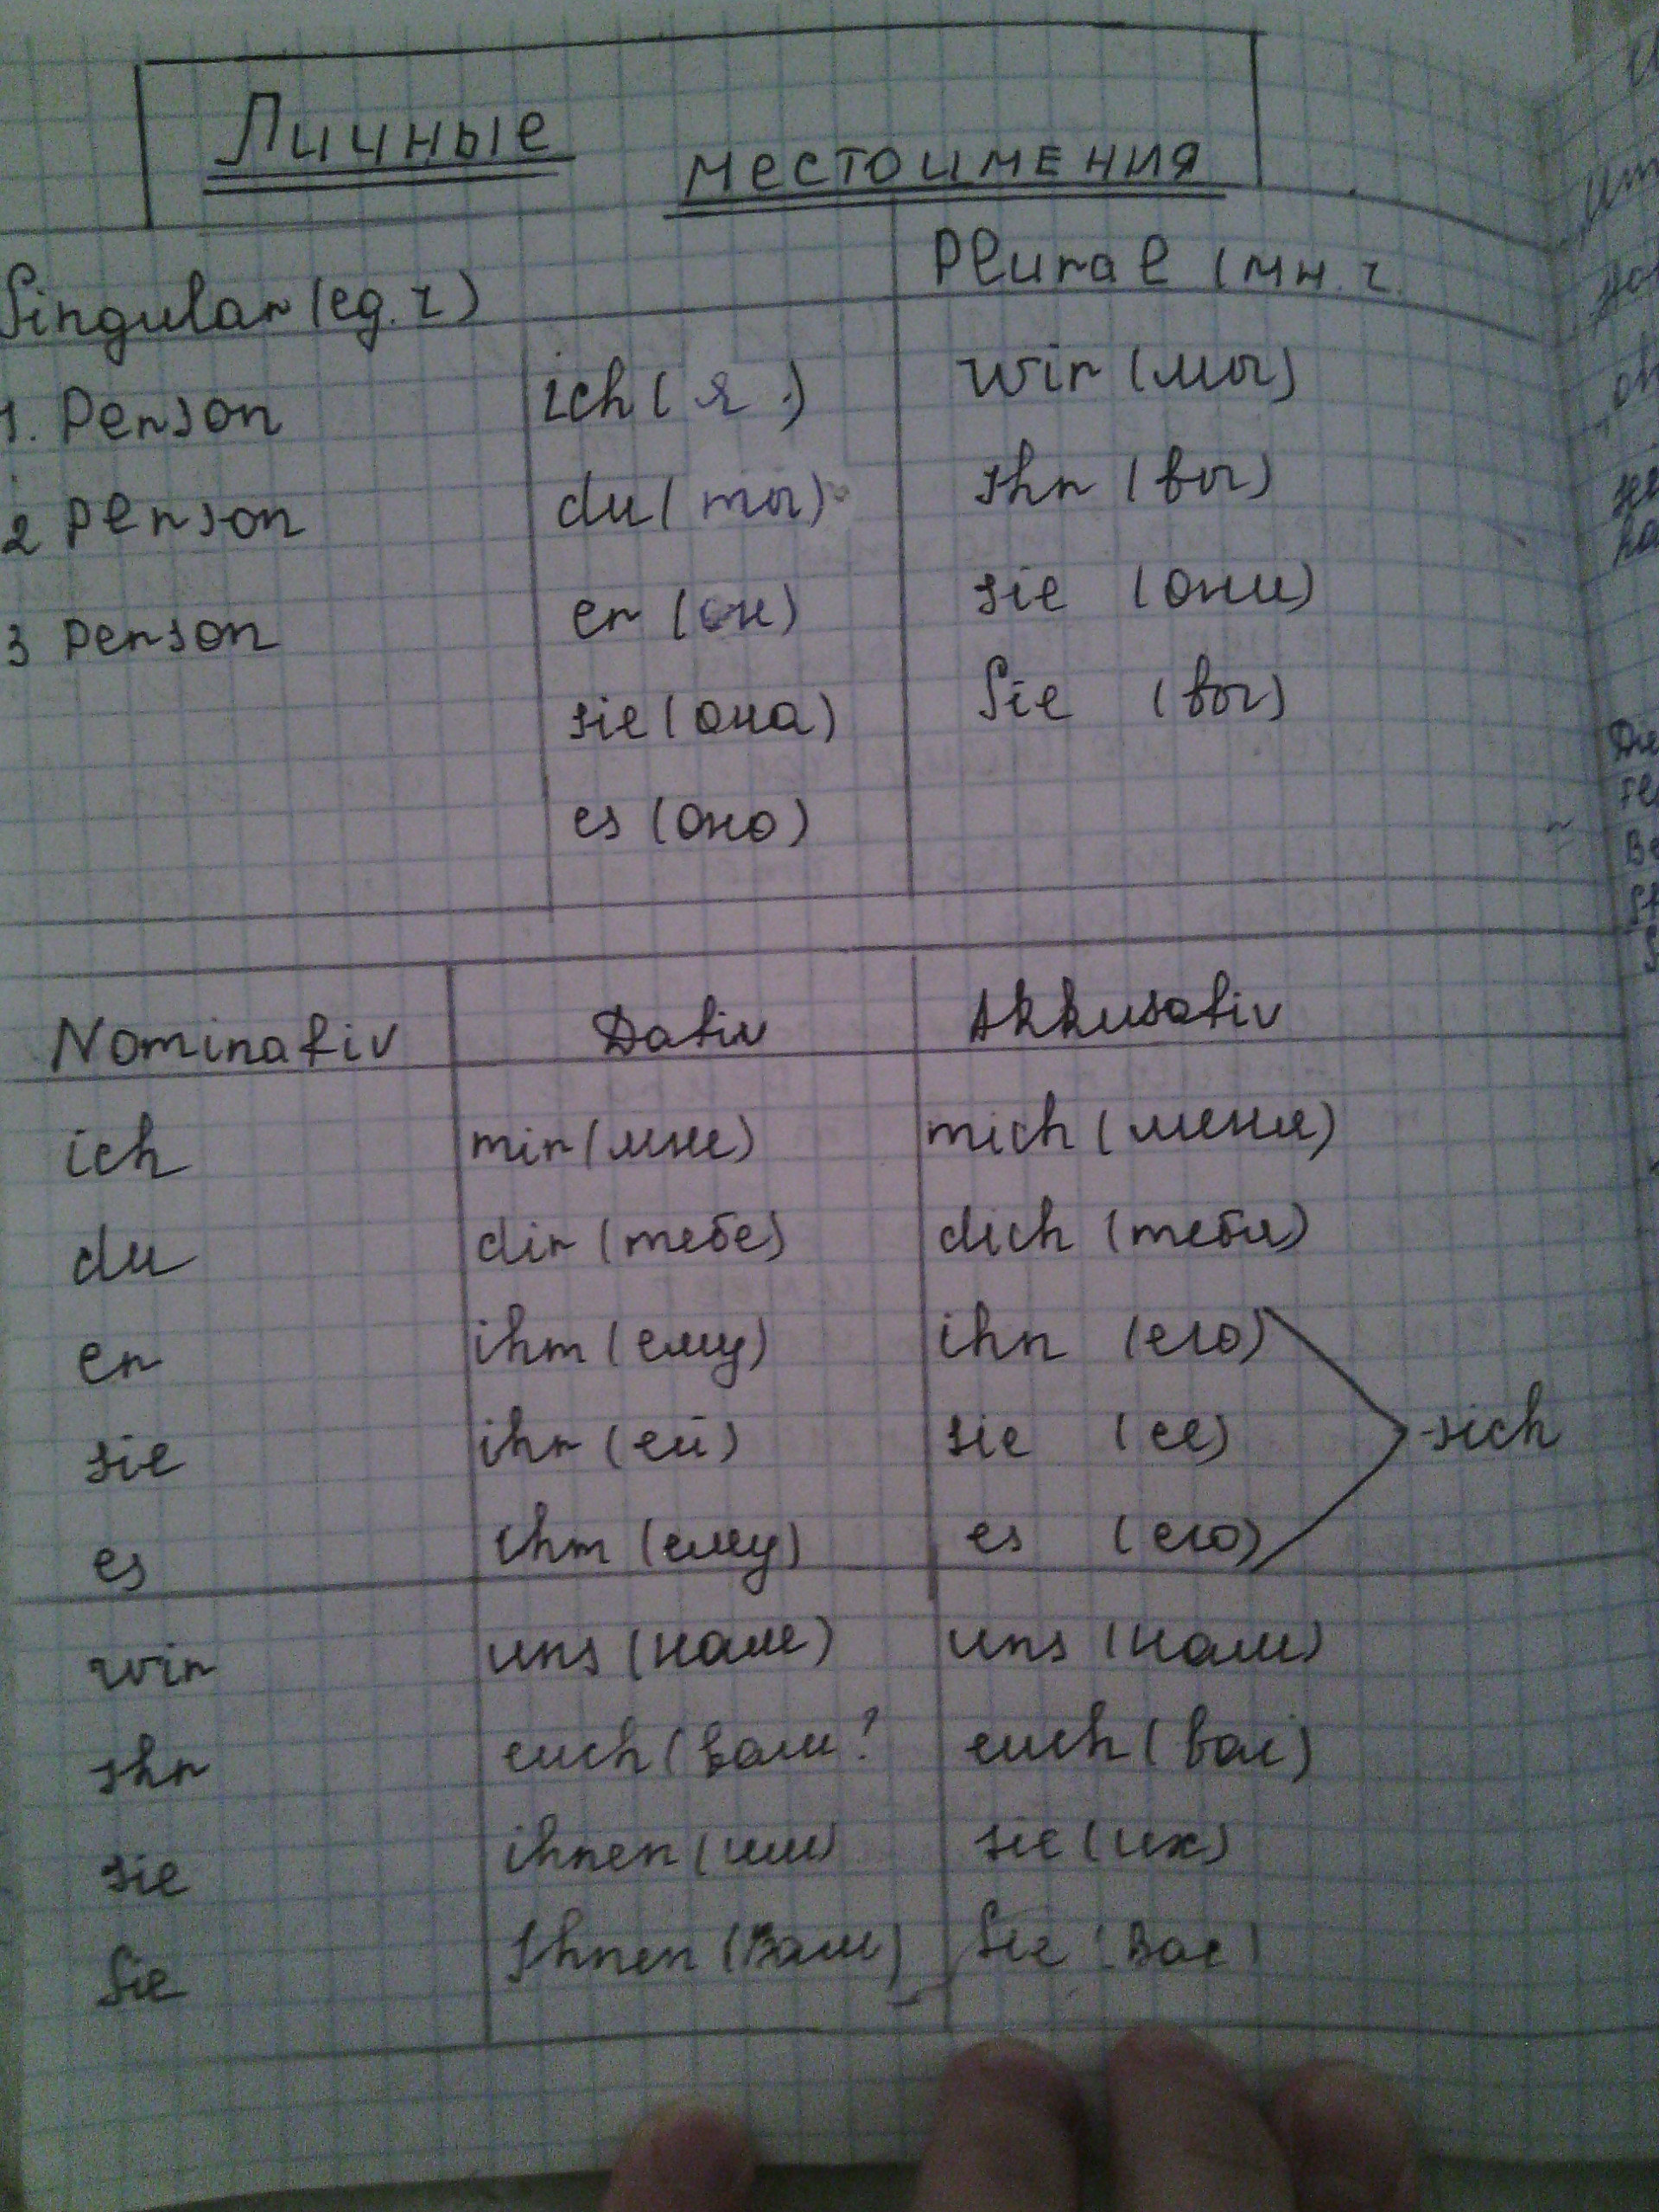 Личные
местоимения
Singular (ед. ч) Plural (мн. ч.
1. Person ich (я.) wir (мы)
2 Person du (ты) ihr (вы)
3 Person er (он) sie (они)
sie (она) Sie (вы)
es (оно)
Nominativ Dativ Akkusativ
ich mir (мне) mich (меня)
du dir (тебе) dich (тебя)
er ihm (ему) ihn (его)
sie ihr (ей) sie (ее) - sich
es ihm (ему) es (его)
wir uns (нам) uns (нам)
ihr euch (вам) euch (вас)
sie ihnen (им) sie (их)
Sie Ihnen (Вам) Sie (Вас)